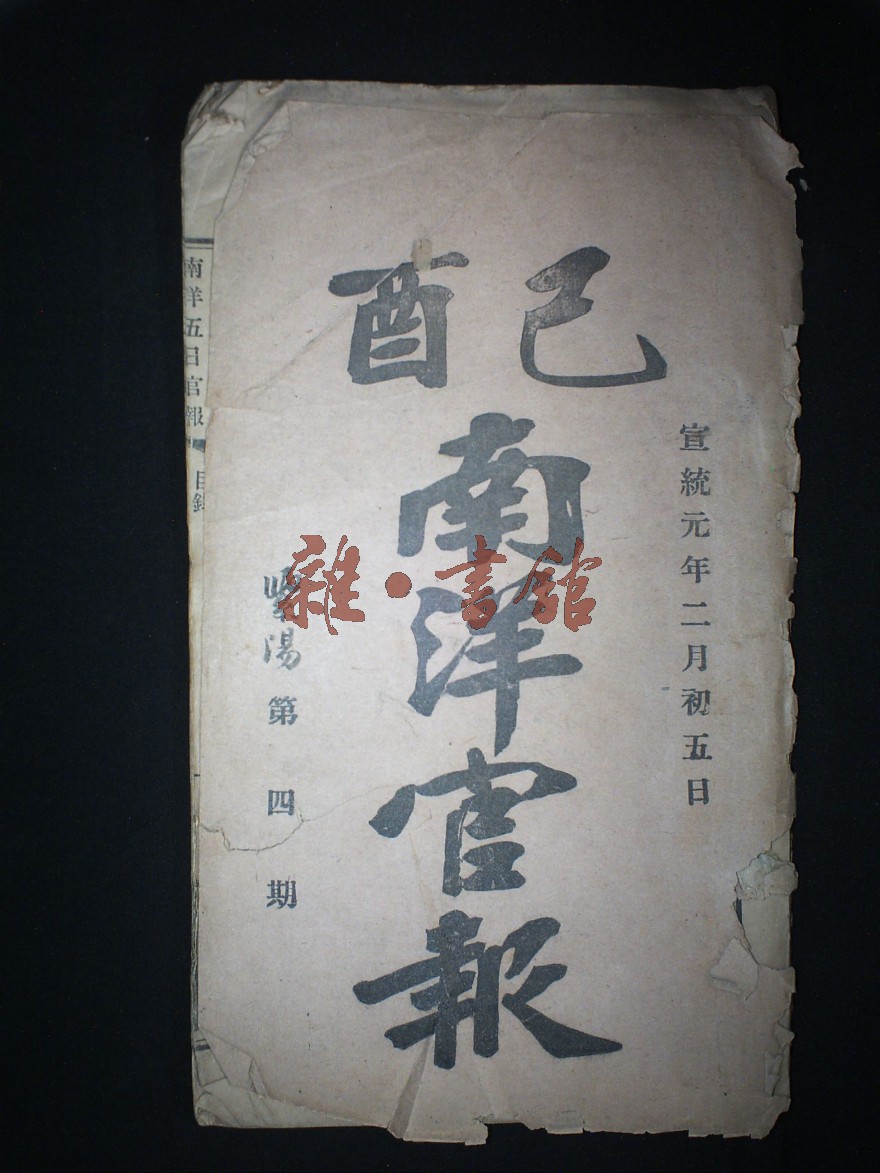 己酉
宣統元年二月初五日
南洋官報
陽第四期
南洋五日官報
目錄
雜·書館